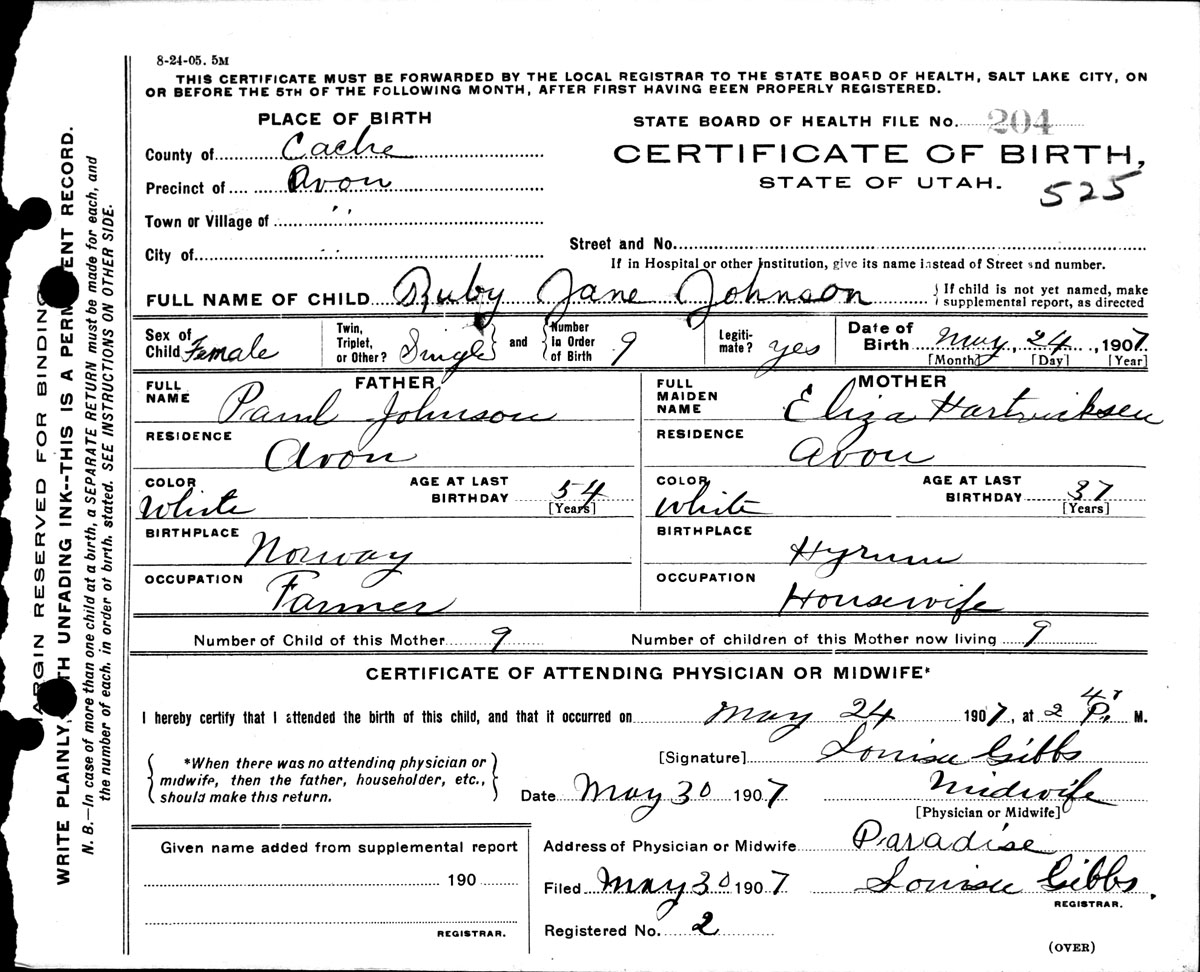 8-24-05. 5M
THIS CERTIFICATE MUST BE FORWARDED BY THE LOCAL REGISTRAR TO THE STATE BOARD OF HEALTH, SALT LAKE CITY, ON
OR BEFORE THE 5TH OF THE FOLLOWING MONTH, AFTER FIRST HAVING BEEN PROPERLY REGISTERED.
PLACE OF BIRTH
County of Cache
Precinct of Avon
Town or Village of ,,
City of ,,
STATE BOARD OF HEALTH FILE No. 204
CERTIFICATE OF BIRTH,
STATE OF UTAH.
525
Street and No.
If in Hospital or other Institution, give its name instead of Street and number.
FULL NAME OF CHILD Ruby Jane Johnson { If child is not yet named, make
supplemental report, as directed
Sex of Child Female
Twin, Triplet, or Other? Single and Number in Order of Birth 9
Legitimate? yes
Date of Birth May, 24, 1907.
[Month] [Day] [Year]
FATHER
FULL NAME Paul Johnson
RESIDENCE
Avon
COLOR White AGE AT LAST BIRTHDAY 54
[Years]
BIRTHPLACE Norway
OCCUPATION Farmer
MOTHER
FULL MAIDEN NAME Eliza
RESIDENCE
Avon
COLOR White AGE AT LAST BIRTHDAY 37
[Years]
BIRTHPLACE Hyrum
OCCUPATION
Housewife
Number of Child of this Mother 9 Number of children of this Mother now living 9
CERTIFICATE OF ATTENDING PHYSICIAN OR MIDWIFE*
I hereby certify that I attended the birth of this child, and that it occurred on May 24 1907, at 2 P. M.
*When there was no attending physician or
midwife, then the father, householder, etc.,
should make this return.
[Signature] Louisa Gibbs
Date May 30 1907 Midwife
[Physician or Midwife]
Address of Physician or Midwife Paradise
Filed May 30 1907 Louisa Gibbs.
REGISTRAR.
Registered No. 2
(OVER)
Given name added from supplemental report
190
REGISTRAR.
MARGIN RESERVED FOR BINDING
WRITE PLAINLY, WITH UNFADING INK--THIS IS A PERMANENT RECORD.
N. B.—In case of more than one child at a birth, a SEPARATE RETURN must be made for each, and
the number of each, in order of birth, stated. SEE INSTRUCTIONS ON OTHER SIDE.